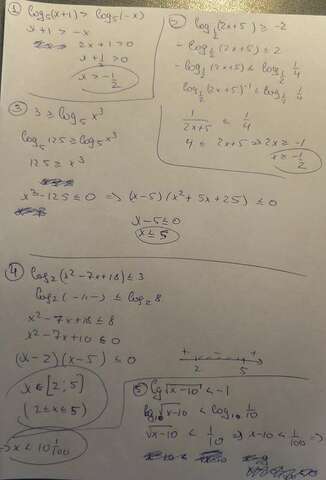 ① log₅(x+1) > log₅(-x)
x+1 > -x
2x+1>0
x+½>0
x>-½
② log½(2x+5) ≥ -2
-log½(2x+5) ≤ 2
log½(2x+5)⁻¹ ≤ log½ ¼
1/(2x+5) ≤ ¼
③ 3 ≥ log₅ x³
log₅ 125 ≥ log₅ x³
125 ≥ x³
x³-125 ≤ 0 ⇒ (x-5)(x²+5x+25) ≤ 0
x-5≤0
x≤5
④ log₂(x²-7x+18) ≤ 3
log₂(-11-) ≤ log₂8
x²-7x+10 ≤ 0
(x-2)(x-5) ≤ 0
+ - +
2 5
x∈[2;5]
(2≤x≤5)
⑤ lg√x-10 < -1
log₁₀√x-10 < log₁₀ 1/10
√x-10 < 1/10 ⇒ x-10 < 1/100 ⇒
⇒ x < 10 1/100